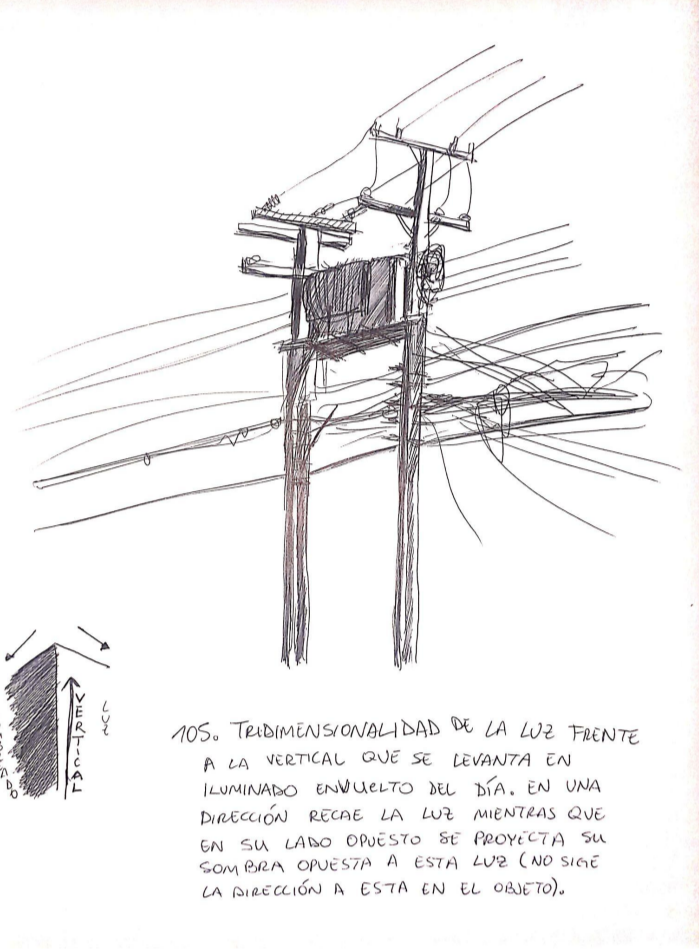 VERTICAL
LUZ
105. TRIDIMENSIONALIDAD DE LA LUZ FRENTE
A LA VERTICAL QUE SE LEVANTA EN
ILUMINADO ENVUELTO DEL DÍA. EN UNA
DIRECCIÓN RECAE LA LUZ MIENTRAS QUE
EN SU LADO OPUESTO SE PROYECTA SU
SOMBRA OPUESTA A ESTA LUZ (NO SIGE
LA DIRECCIÓN A ESTA EN EL OBJETO).